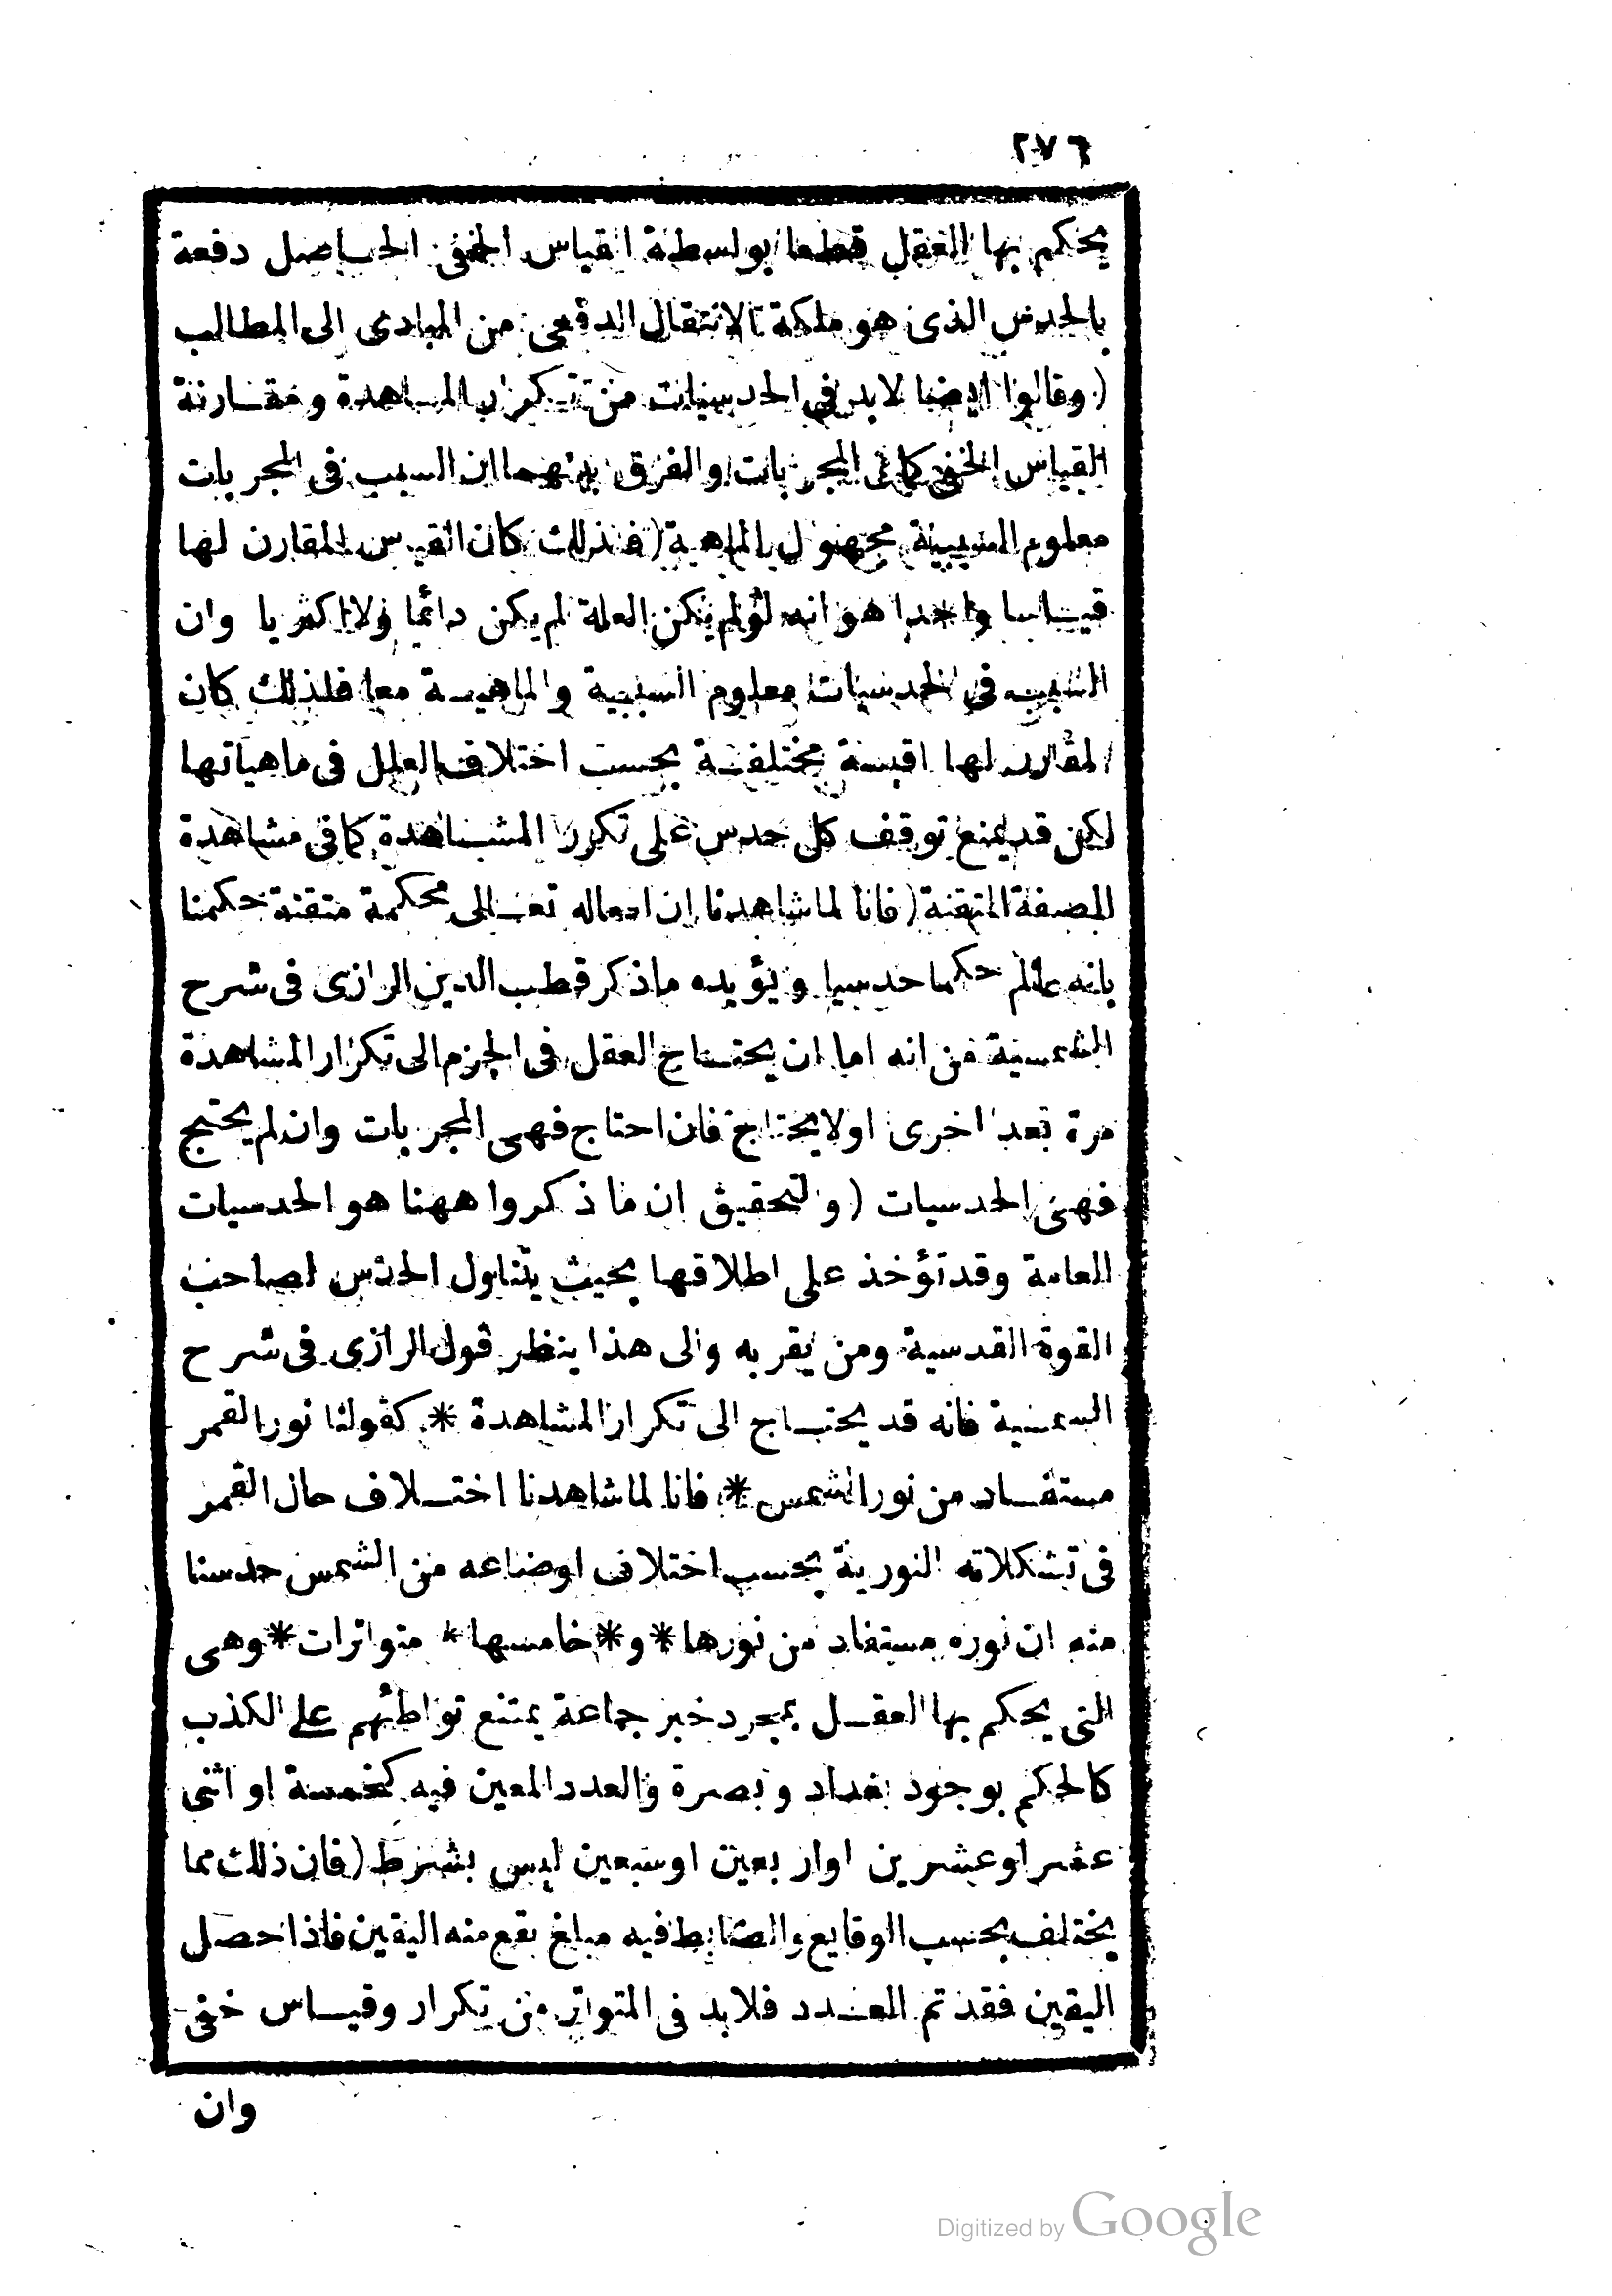 ٢٧٦
يحكم بها العقل قطعا بواسطة القياس الخفى الحاصل دفعة
بالحدس الذى هو ملكة الانتقال الدفعى من المبادى الى المطالب
(وقالوا ايضا لابد فى الحدسيات من تكرار المشاهدة ومقارنة
القياس الخفى كما فى المجربات والفرق بينهما ان السبب فى المجربات
معلوم السببية مجهول الماهية (فلذلك كان القياس المقارن لها
قياسا واحدا هو انه لو لم يكن العلة لم يكن دائما ولا اكثريا وان
السبب فى الحدسيات معلوم السببية والماهية معا فلذلك كان
المقارن لها اقيسة مختلفة بحسب اختلاف العلل فى ماهياتها
لكن قد يمنع توقف كل حدس على تكرر المشاهدة كما فى مشاهدة
الصنعة المتقنة (فانا لما شاهدنا ان افعاله تعالى محكمة متقنة حكمنا
بانه عالم حكما حدسيا ويؤيده ماذكر قطب الدين الرازى فى شرح
الشمسية من انه اما ان يحتاج العقل فى الجزم الى تكرار المشاهدة
مرة بعد اخرى اولا يحتاج فان احتاج فهى المجربات وان لم يحتج
فهى الحدسيات (والتحقيق ان ما ذكروا ههنا هو الحدسيات
العامة وقد تؤخذ على اطلاقها بحيث يتناول الحدس لصاحب
القوة القدسية ومن يقربه والى هذا ينظر قول الرازى فى شرح
الشمسية فانه قد يحتاج الى تكرار المشاهدة * كقولنا نور القمر
مستفاد من نور الشمس * فانا لما شاهدنا اختلاف حال القمر
فى تشكلاته النورية بحسب اختلاف اوضاعه من الشمس حدسنا
منه ان نوره مستفاد من نورها * و * خامسها * متواترات * وهى
التى يحكم بها العقل بمجرد خبر جماعة يمتنع تواطئهم على الكذب
كالحكم بوجود بغداد وبصرة والعدد المعين فيه كخمسة او اثنى
عشر او عشرين او اربعين او سبعين ليس بشرط (فان ذلك مما
يختلف بحسب الوقايع والضابط فيه مبلغ يقع منه اليقين فاذا حصل
اليقين فقد تم العدد فلابد فى المتواتر من تكرار وقياس خفى
وان
Digitized by Google